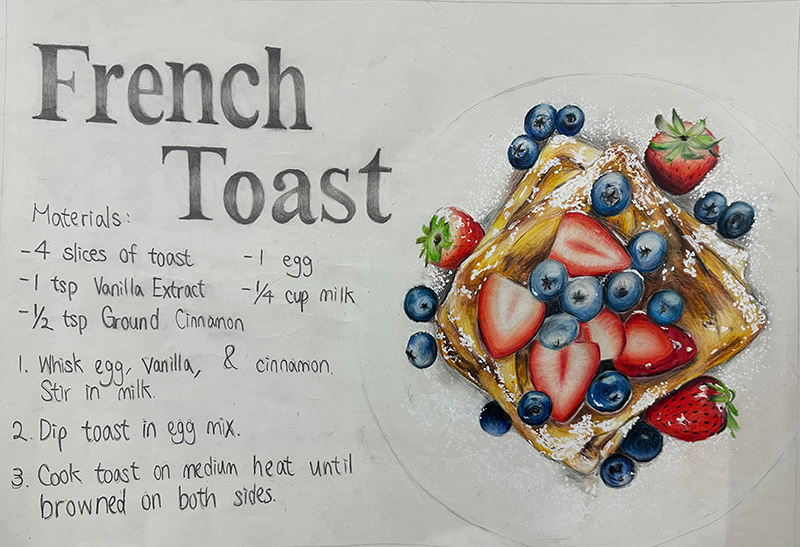 French
Toast
Materials:
-4 slices of toast
-1 egg
-1 tsp Vanilla Extract
-1/4 cup milk
-1/2 tsp Ground Cinnamon
1. Whisk egg, Vanilla, & cinnamon.
Stir in milk.
2. Dip toast in egg mix.
3. Cook toast on medium heat until
browned on both sides.